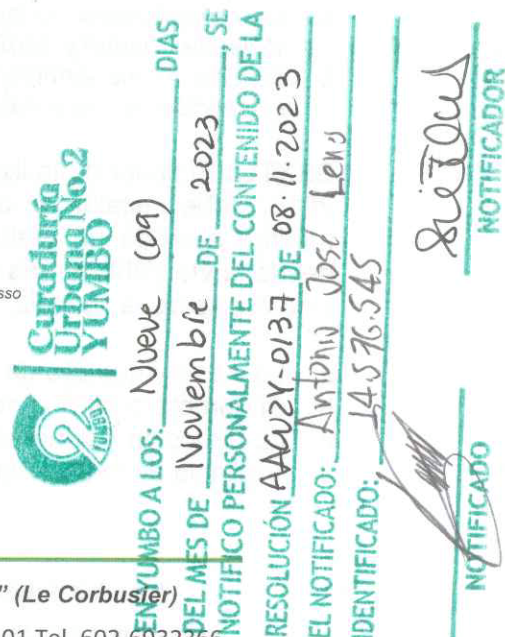 Curaduría
Urbana No.2
YUMBO
YUMBO
EN YUMBO A LOS: Nueve (09) DIAS
DEL MES DE Noviembre DE 2023, SE
NOTIFICO PERSONALMENTE DEL CONTENIDO DE LA
RESOLUCIÓN AACU2Y-0137 DE 08.11.2023
EL NOTIFICADO: Antonio José
IDENTIFICADO: 14.576.545
NOTIFICADO NOTIFICADOR
sso
” (Le Corbusier)
01 Tel. 602-6932366